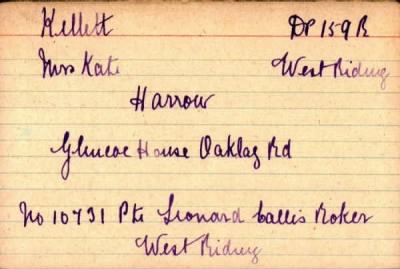 Kellett DP 159 B
Mrs Kate West Riding
Harrow
Glencoe House Oaklaz Rd
No 10731 Pte Leonard Callis Roker
West Riding